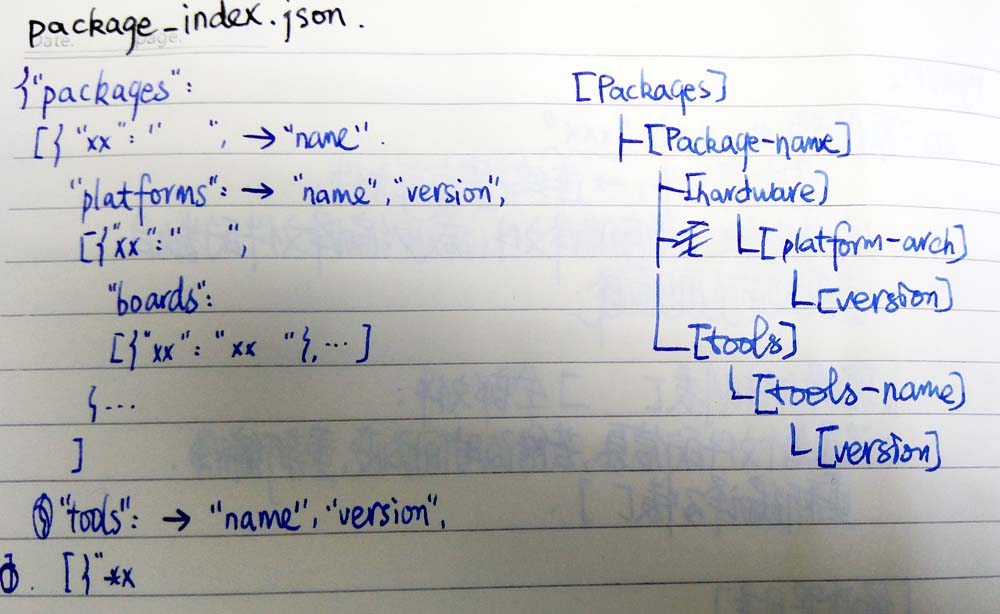 package_index.json.
Date. page.
{"packages":
[{"xx":" ", → "name".
"platforms": → "name","version",
[{"xx":" ",
"boards":
[{"xx":"xx "{,...]
{...
]
"tools": → "name","version",
[{"xx
[Packages]
├[Package-name]
├[hardware]
├ └[platform-arch]
└[version]
└[tools]
└[tools-name]
└[version]